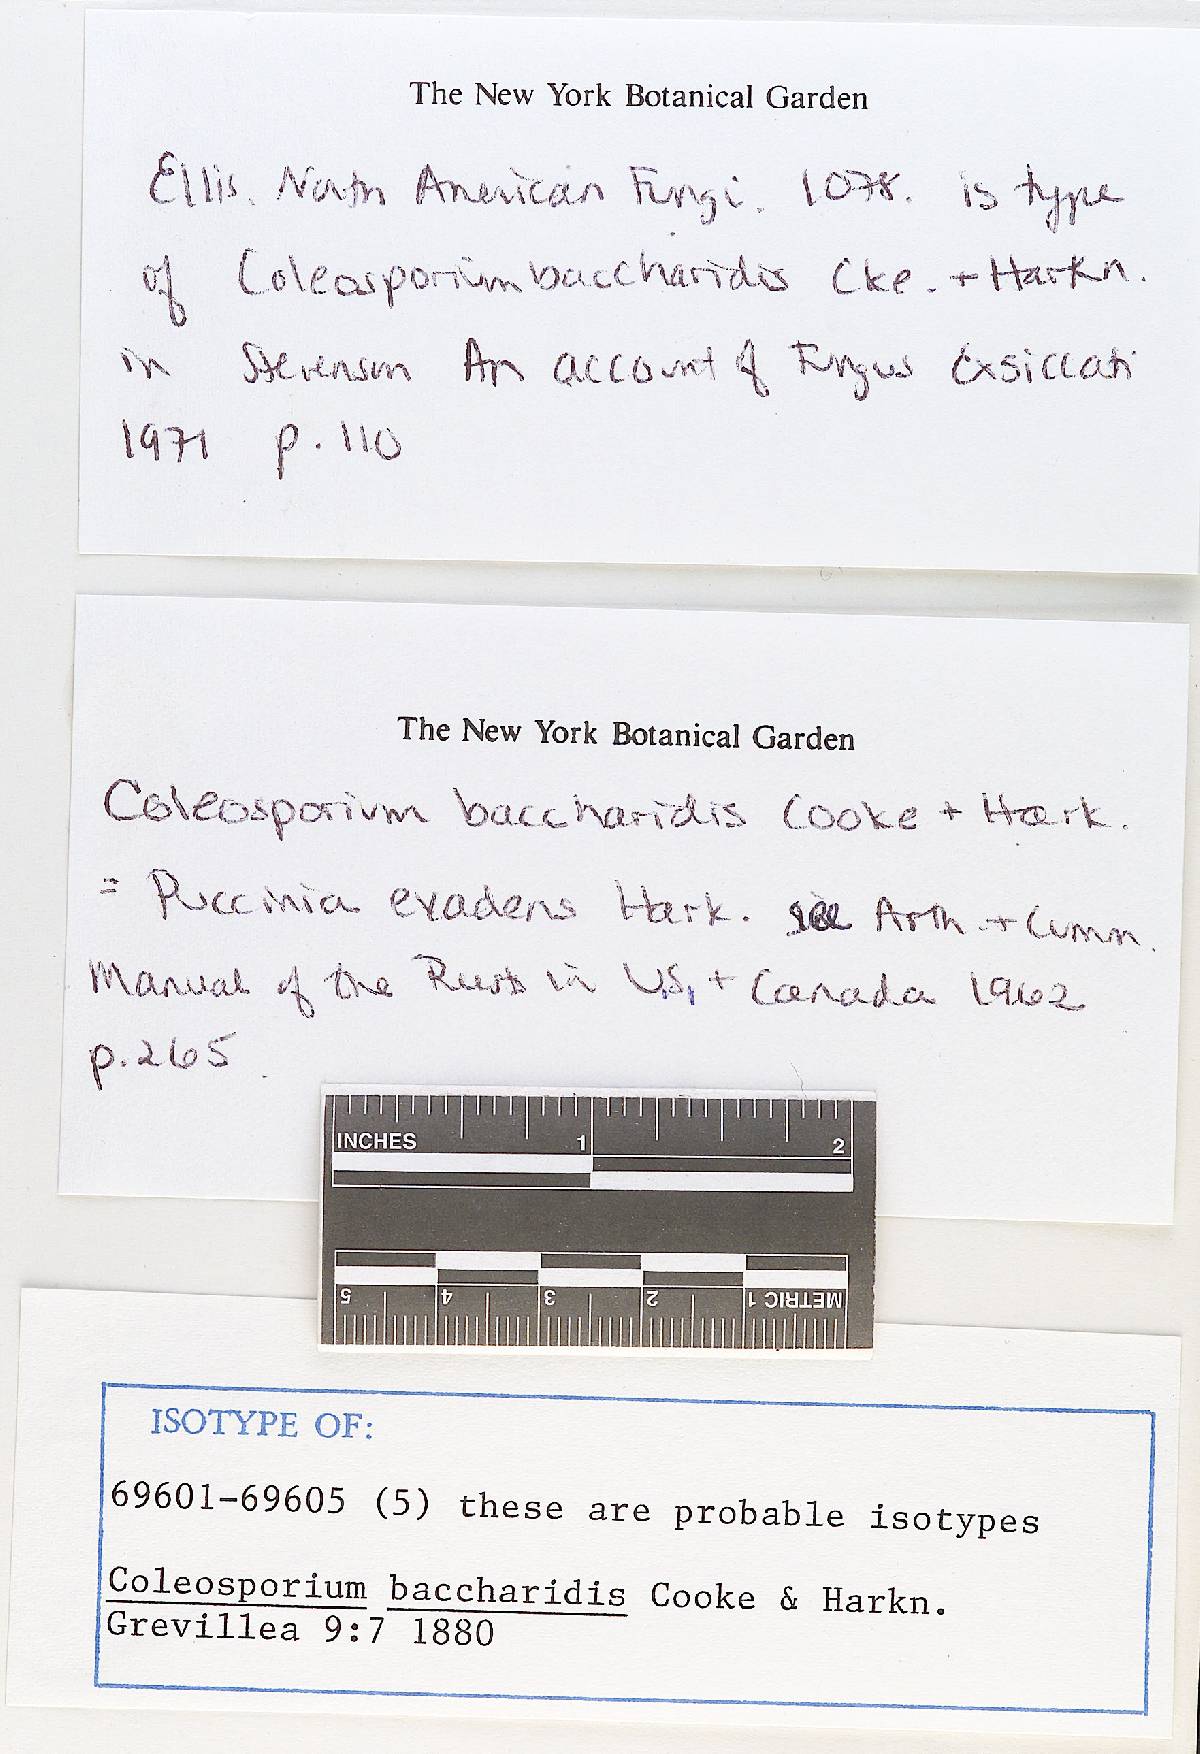 The New York Botanical Garden
Ellis. North American Fungi. 1078. is type
of Coleosporium baccharidis Cke. + Harkn.
in Stevenson An account of Fungus Exsiccati
1971 p. 110
The New York Botanical Garden
Coleosporium baccharidis Cooke + Hark.
= Puccinia evadens Hark. see Arth. + Cumm.
Manual of the Rusts in U.S. + Canada 1962
p. 265
INCHES 1 2
5 4 3 2 1 METRIC
ISOTYPE OF:
69601-69605 (5) these are probable isotypes
Coleosporium baccharidis Cooke & Harkn.
Grevillea 9:7 1880